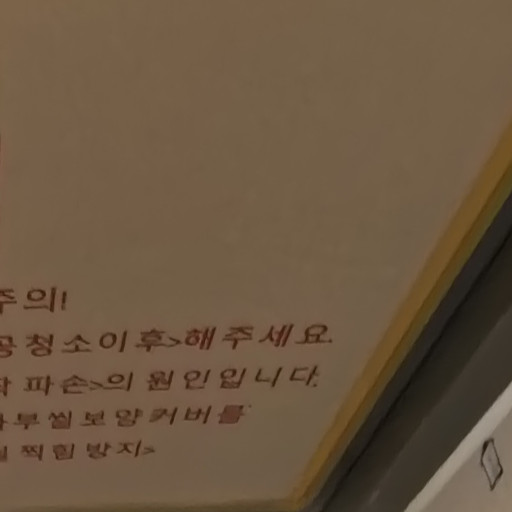 주의!
공청소이후>해주세요.
파손>의 원인입니다.
부씰보양커버를
찍힘방지>